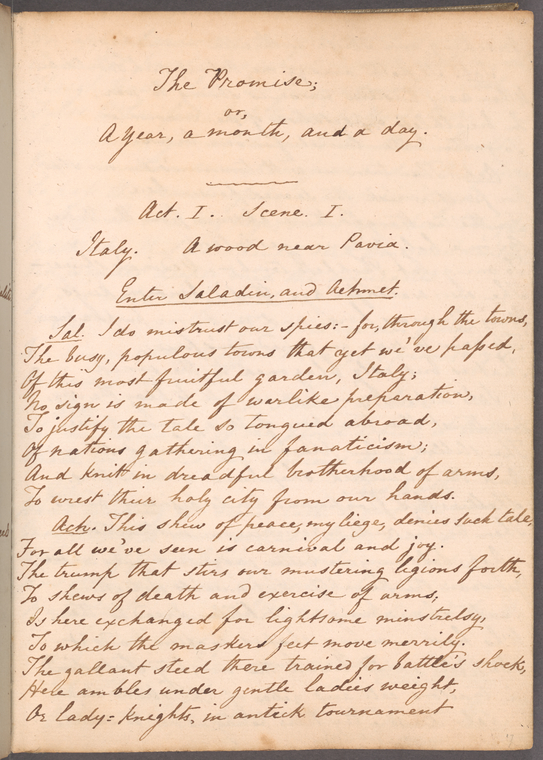 The Promise;
or,
A Year, a month, and a day.
Act. I. Scene. I.
Italy. A wood near Pavia.
Enter Saladin, and Achmet.
Sal. I do mistrust our spies:- for, through the towns,
The busy, populous towns that yet we've passed,
Of this most fruitful garden, Italy;
No sign is made of warlike preparation,
To justify the tale so tongued abroad,
Of nations gathering in fanaticism;
And knit in dreadful brotherhood of arms,
To wrest their holy city from our hands.
Ach. This shew of peace, my liege, denies such tale,
For all we've seen is carnival and joy.
The trump that stirs our mustering legions forth,
To shews of death and exercise of arms,
Is here exchanged for lightsome minstrelsy,
To which the maskers feet move merrily.
The gallant steed there trained for battle's shock,
Here ambles under gentle ladies weight,
Or lady=knights, in antick tournament